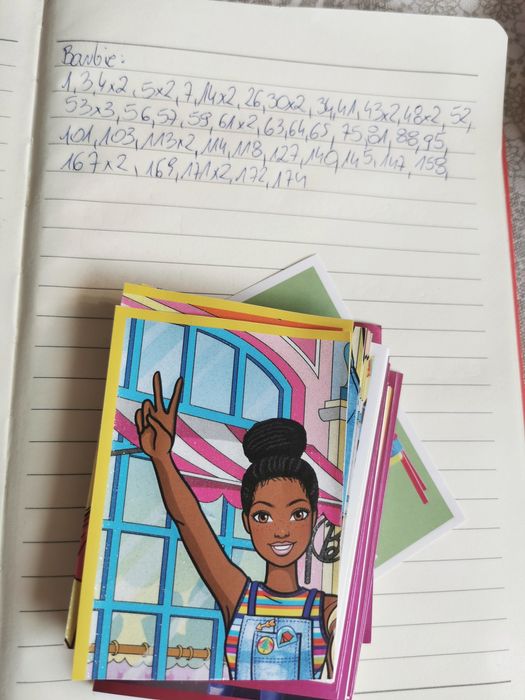 Barbie:
1, 3, 4x2, 5x2, 7, 14x2, 26, 30x2, 34, 41, 43x2, 48x2, 52,
53x3, 56, 57, 59, 61x2, 63, 64, 65, 75, 81, 88, 95,
101, 103, 113x2, 114, 118, 127, 140, 145, 147, 158,
167x2, 169, 171x2, 172, 174